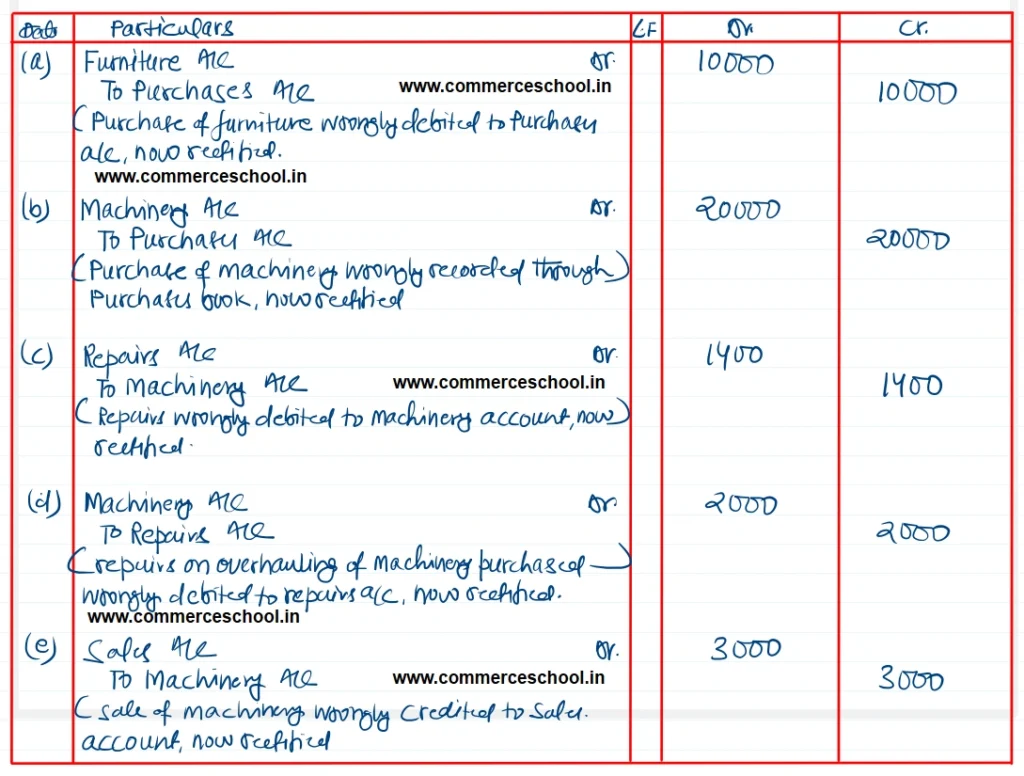 Date Particulars LF Dr. Cr.
(a) Furniture A/c Dr. 10000
To Purchases A/c www.commerceschool.in 10000
(Purchase of furniture wrongly debited to purchases
a/c, now rectified.
www.commerceschool.in
(b) Machinery A/c Dr. 20000
To Purchases A/c 20000
(Purchase of machinery wrongly recorded through)
Purchases book, now rectified
(c) Repairs A/c Dr. 1400
To Machinery A/c www.commerceschool.in 1400
(Repairs wrongly debited to machinery account, now)
rectified.
(d) Machinery A/c Dr. 2000
To Repairs A/c 2000
(repairs on overhauling of Machinery purchased)
wrongly debited to repairs a/c, now rectified.
www.commerceschool.in
(e) Sales A/c Dr. 3000
To Machinery A/c www.commerceschool.in 3000
(Sale of machinery wrongly credited to sales.
account, now rectified